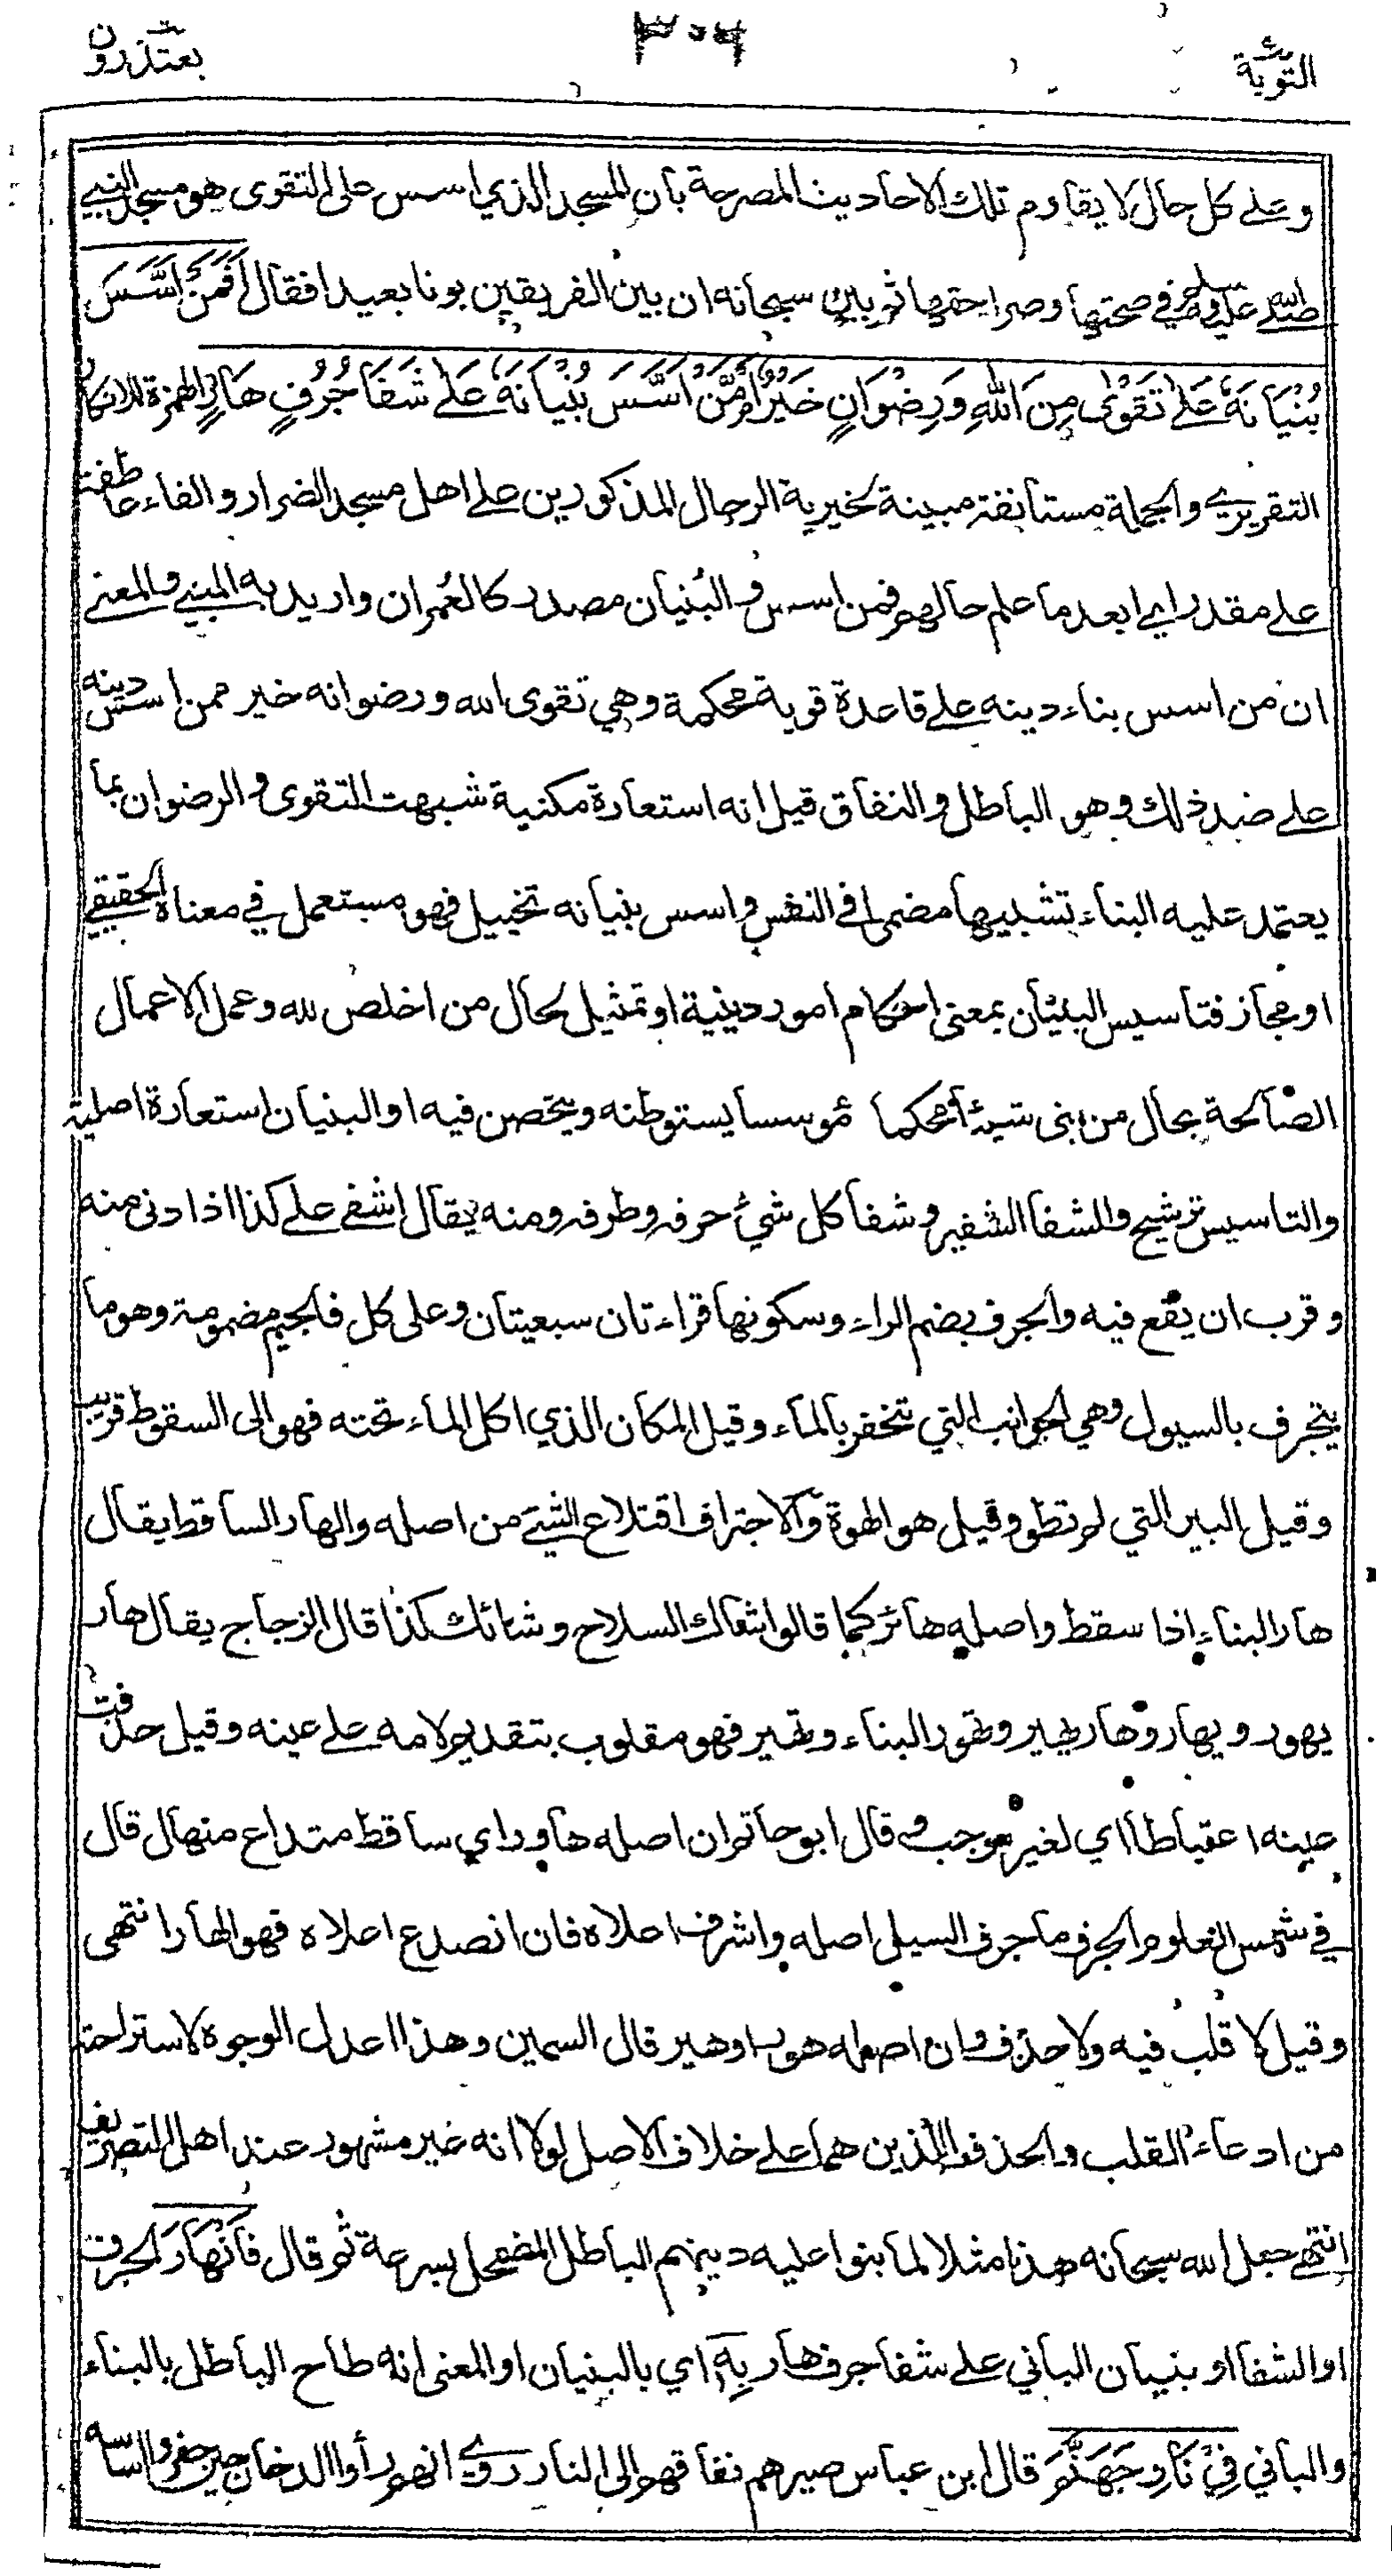 التوبة
٣٠٤
يعتذرون
وعلى كل حال لا يقاوم تلك الاحاديث المصرحة بأن المسجد الذي اسس على التقوى هو مسجد النبي
صلى الله عليه وسلم في صحتها وصراحتها ثم بين سبحانه ان بين الفريقين بونا بعيدا فقال أَفَمَنْ أَسَّسَ
بُنْيَانَهُ عَلَىٰ تَقْوٰى مِنَ اللّٰهِ وَرِضْوَانٍ خَيْرٌ أَمْ مَّنْ أَسَّسَ بُنْيَانَهُ عَلٰى شَفَا جُرُفٍ هَارٍ الهمزة للانكار
التقريري والجملة مستأنفة مبينة لخيرية الرجال المذكورين على اهل مسجد الضرار والفاء عاطفة
على مقدر اي ابعد ما علم حالهم فمن اسس والبُنيان مصدر كالعُمران واريد به المبني والمعنى
ان من اسس بناء دينه على قاعدة قوية محكمة وهي تقوى الله ورضوانه خير ممن اسس دينه
على ضد ذلك وهو الباطل والنفاق قيل انه استعارة مكنية شبهت التقوى والرضوان بما
يعتمد عليه البناء تشبيها مضمرا في النفس واسس بنيانه تخييل فهو مستعمل في معناه الحقيقي
او مجاز فتأسيس البنيان بمعنى احكام امور دينية او تمثيل لحال من اخلص لله وعمل الاعمال
الصالحة بحال من بنى شيئا محكما مؤسسا يستوطنه ويتحصن فيه او البنيان استعارة اصلية
والتاسيس ترشيح والشفا الشفير وشفا كل شيء حرفه وطرفه ومنه يقال اشفى على كذا اذا دنى منه
وقرب ان يقع فيه والجرف بضم الراء وسكونها قراءتان سبعيتان وعلى كل فالجيم مضمومة وهو ما
ينجرف بالسيول وهي الجوانب التي تنحفر بالماء وقيل المكان الذي اكل الماء تحته فهو الى السقوط قريب
وقيل البير التي لم تطو وقيل هو الهوة والاجتراف اقتلاع الشيء من اصله والهار الساقط يقال
هار البناء اذا سقط واصله هائر كما قالوا شاك السلاح وشائك كذا قال الزجاج يقال هار
يهور ويهار وهار يهير وتهور البناء وتهير فهو مقلوب بتقديم لامه على عينه وقيل حذفت
عينه اعتباطا اي لغير موجب وقال ابو حاتم ان اصله هاور اي ساقط متداع منهال قال
في شمس العلوم الجرف ما جرف السيل اصله واشرف اعلاه فان انصدع اعلاه فهو الهار انتهى
وقيل لا قلب فيه ولا حذف وان اصله هور او هير قال السمين وهذا اعدل الوجوه لاستراحته
من ادعاء القلب والحذف الذين هما على خلاف الاصل لولا انه غير مشهور عند اهل التصريف
انتهى جعل الله سبحانه هذا مثلا لما بنوا عليه دينهم الباطل المضمحل بسرعة ثم قال فَانْهَارَ الجرف
او الشفا او بنيان الباني على شفا جرف هار بِهِ اي بالبنيان او المعنى انه طاح الباطل بالبناء
والباني فِيْ نَارِ جَهَنَّمَ قال ابن عباس صيرهم نفاقهم الى النار روي انهم رأوا الدخان حين حفروا اساسه